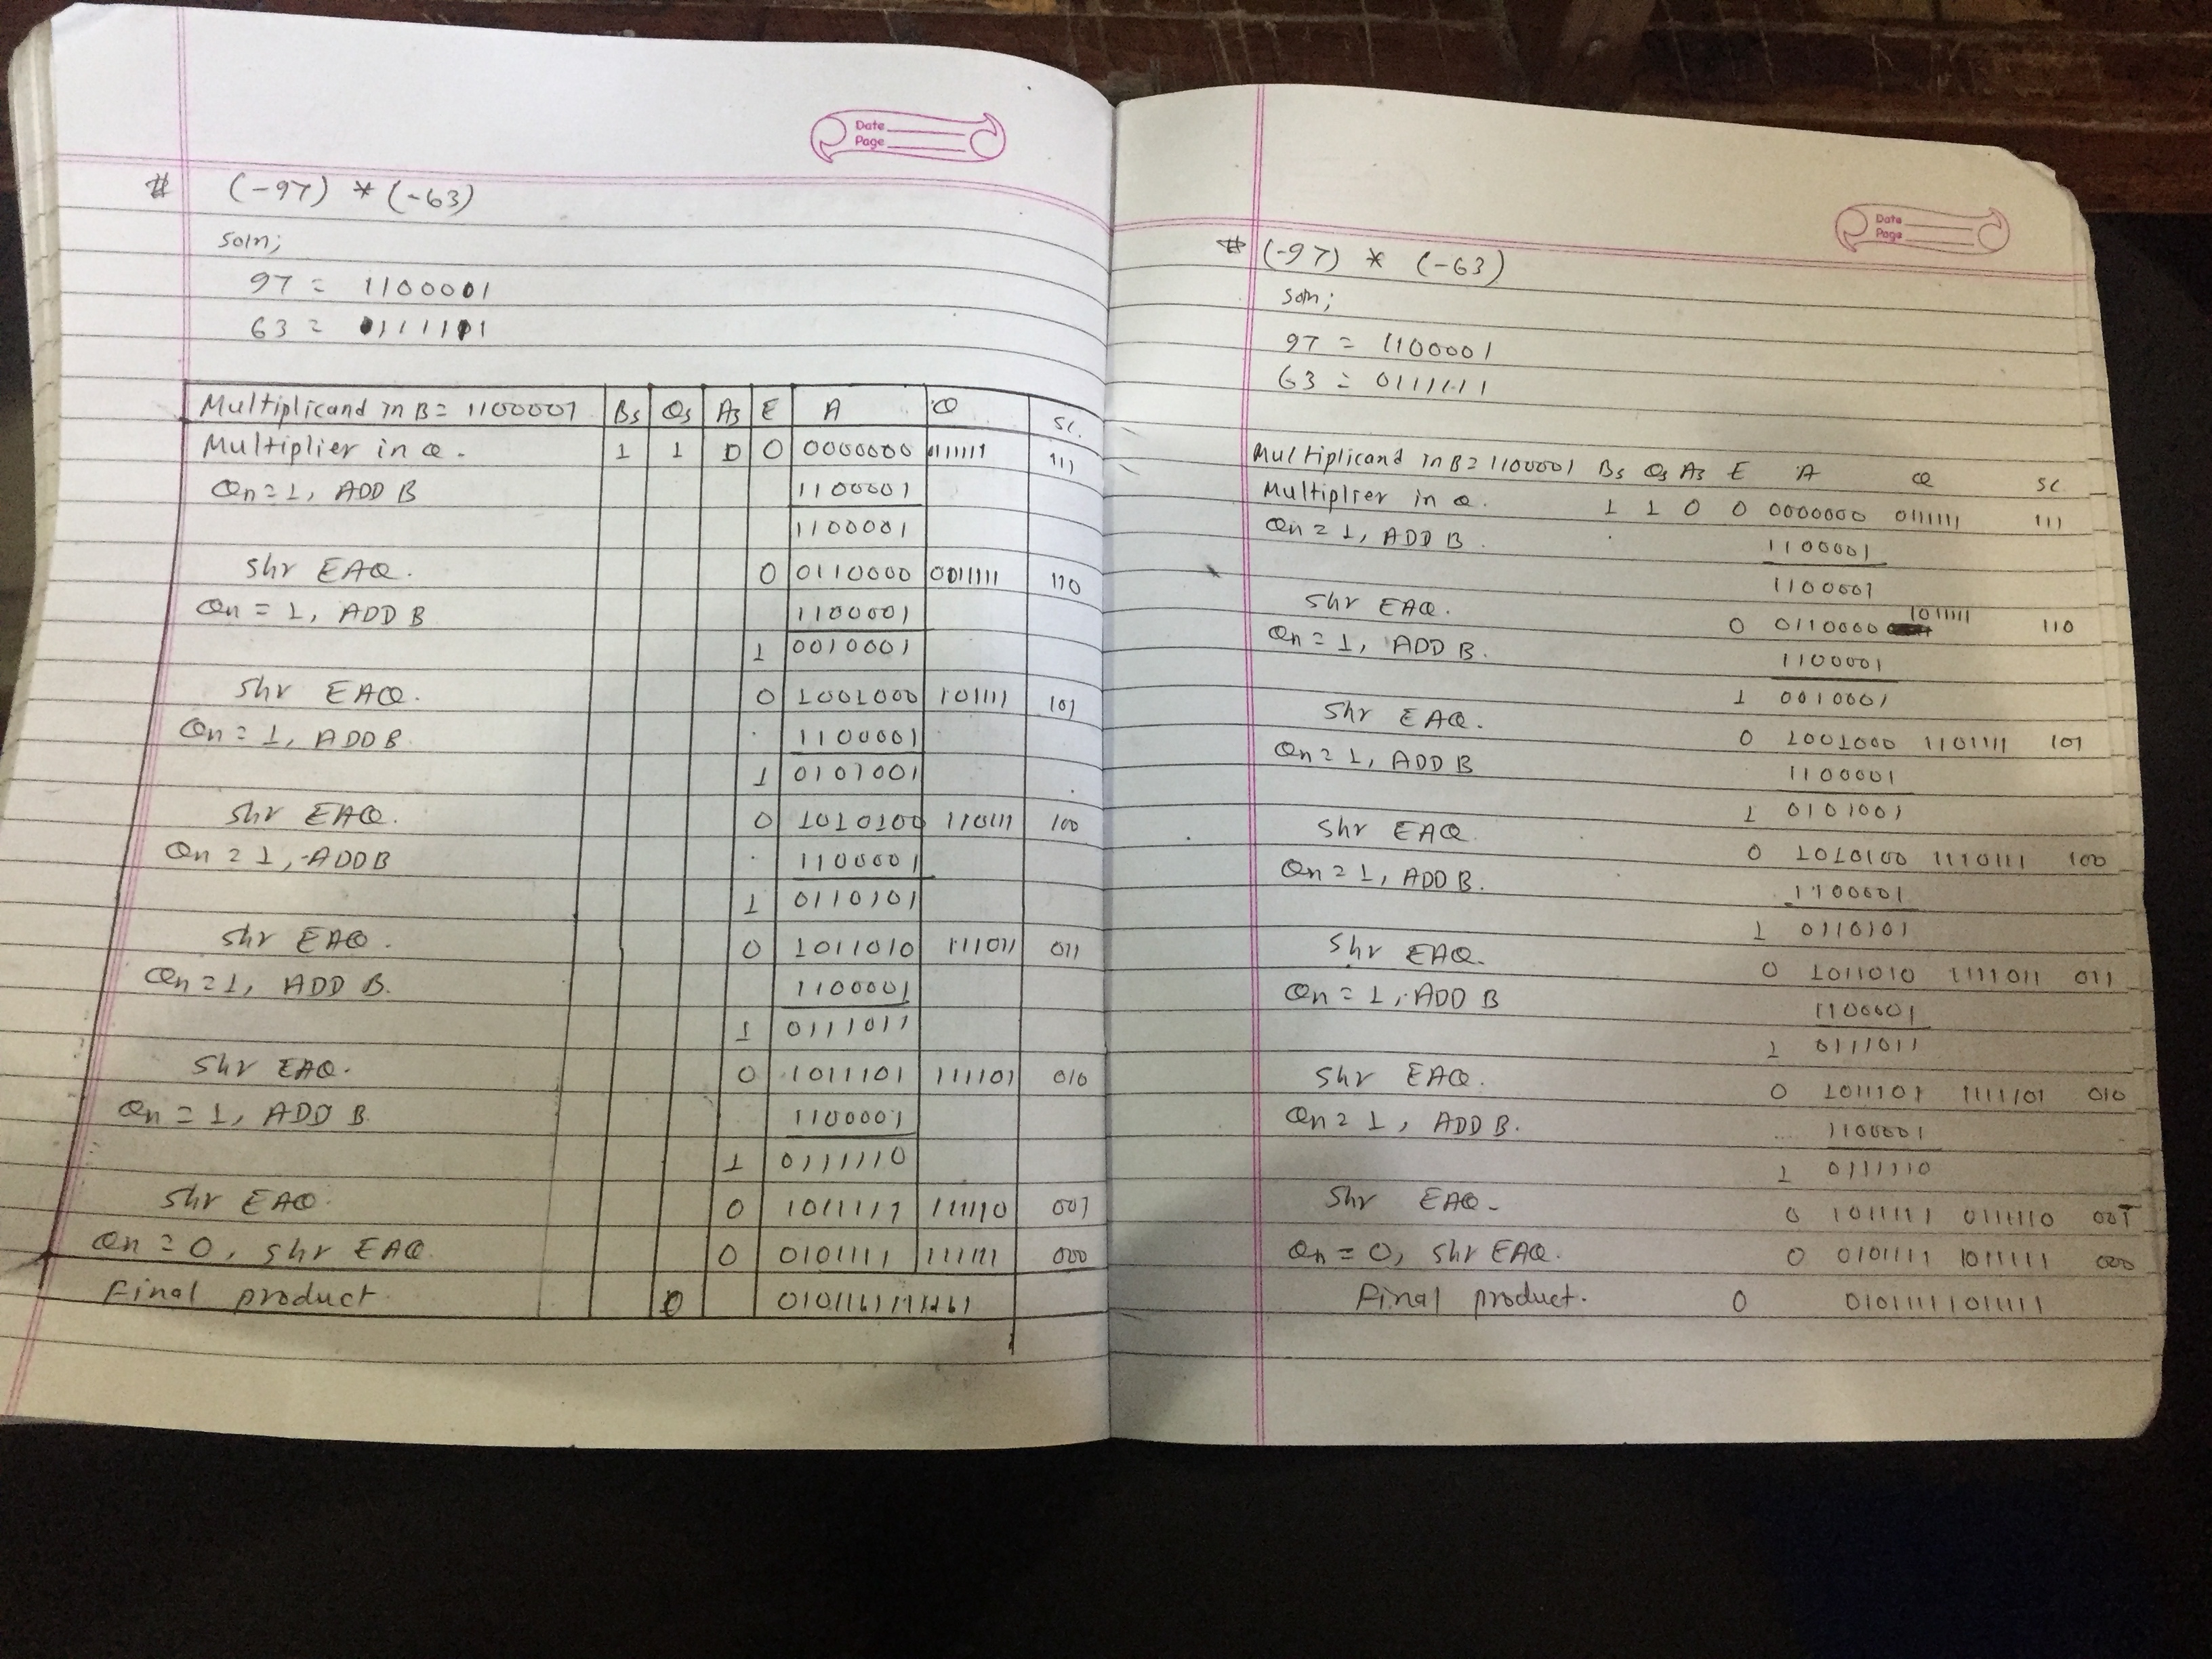 Date
Page
# (-97) * (-63)
Soln;
97 = 1100001
63 = 0111111
Multiplicand in B = 1100001 Bs Qs As E A Q SC
Multiplier in Q. 1 1 0 0 0000000 0111111 111
Qn = 1, ADD B 1100001
1100001
Shr EAQ. 0 0110000 111 110
Qn = 1, ADD B 1100001
1 0010001
Shr EAQ. 0 1001000 101111 101
Qn = 1, ADD B 1100001
1 0101001
Shr EAQ. 0 1010100 110111 100
Qn = 1, ADD B 1100001
1 0110101
Shr EAQ. 0 1011010 111011 011
Qn = 1, ADD B. 1100001
1 0111011
Shr EAQ. 0 1011101 111101 010
Qn = 1, ADD B. 1100001
1 0111110
Shr EAQ. 0 1011111 111110 001
Qn = 0, Shr EAQ. 0 0101111 111111 000
Final product. 0
Date
Page
# (-97) * (-63)
Soln;
97 = 1100001
63 = 0111111
Multiplicand in B = 1100001 Bs Qs As E A Q SC
Multiplier in Q. 1 1 0 0 0000000 0111111 111
Qn = 1, ADD B. 1100001
1100001
Shr EAQ. 0 0110000 1011111 110
Qn = 1, ADD B. 1100001
1 0010001
Shr EAQ. 0 1001000 1101111 101
Qn = 1, ADD B 1100001
1 0101001
Shr EAQ. 0 1010100 1110111 100
Qn = 1, ADD B. 1100001
1 0110101
Shr EAQ. 0 1011010 1111011 011
Qn = 1, ADD B 1100001
1 0111011
Shr EAQ. 0 1011101 1111101 010
Qn = 1, ADD B. 1100001
1 0111110
Shr EAQ. 0 1011111 0111110 001
Qn = 0, Shr EAQ. 0 0101111 1011111 000
Final product. 0 01011111011111